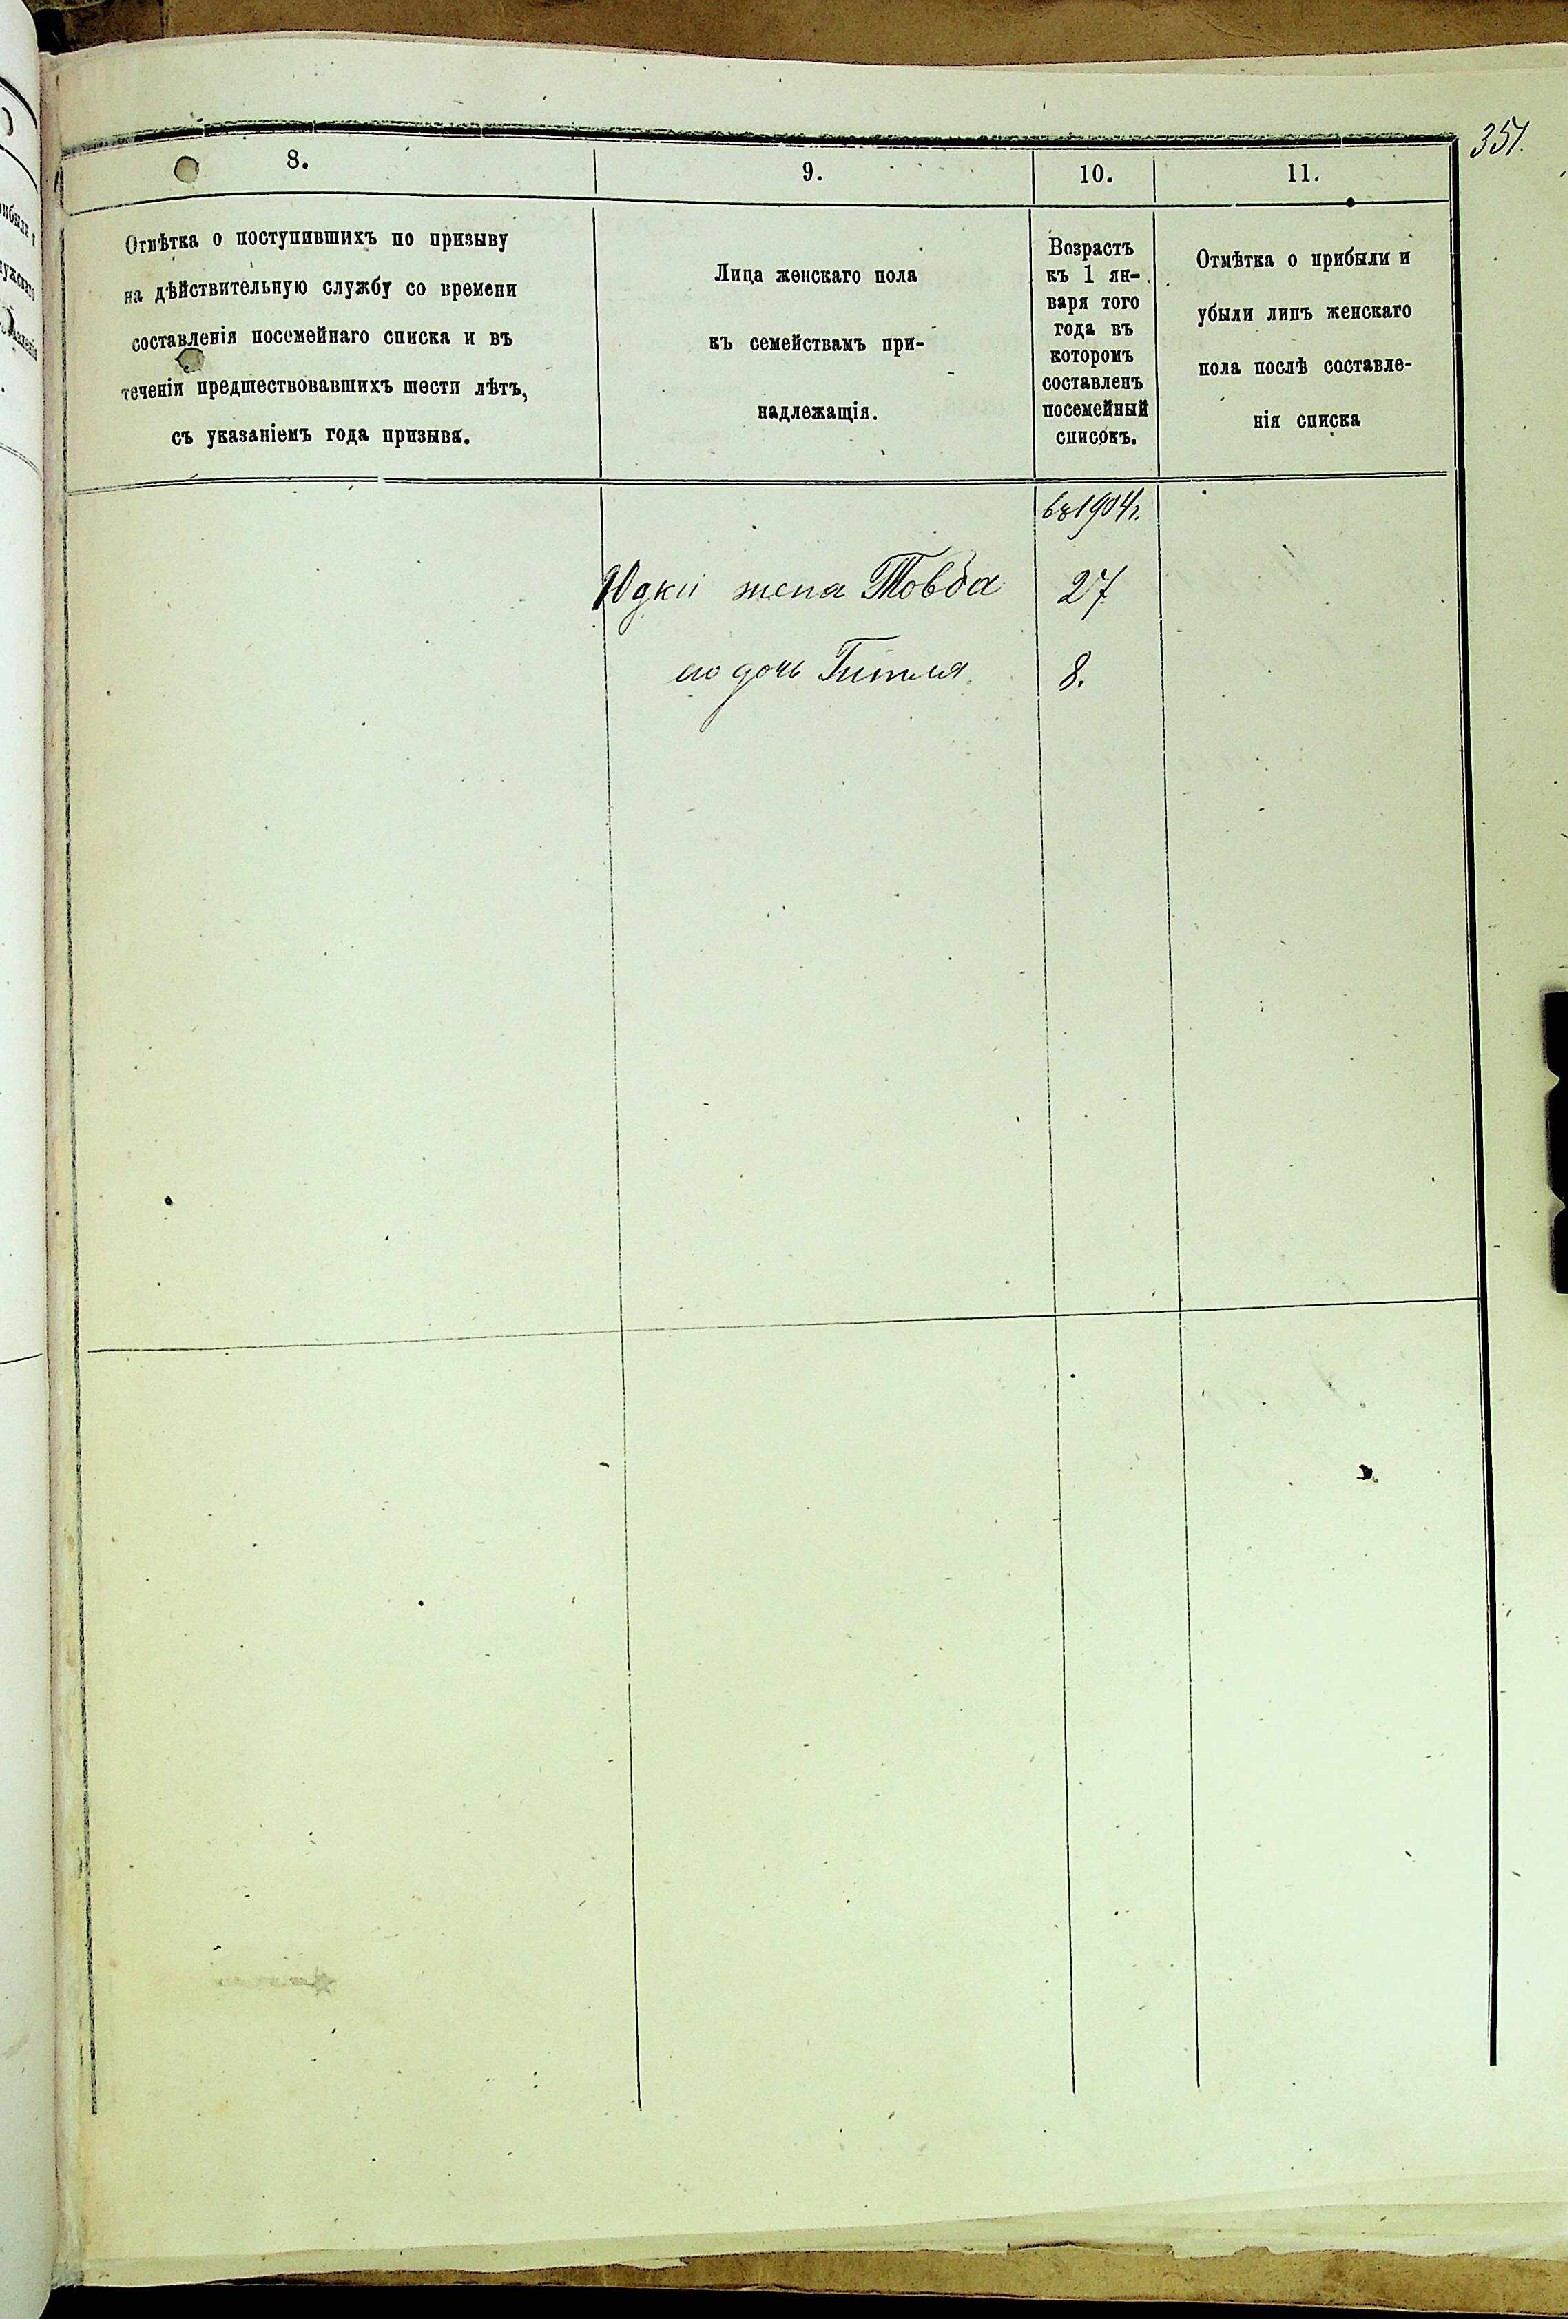 351.
8.
9.
10.
11.
Отмѣтка о поступившихъ по призыву
на дѣйствительную службу со времени
составленія посемейнаго списка и въ
теченіи предшествовавшихъ шести лѣтъ,
съ указаніемъ года призыва.
Лица женскаго пола
къ семействамъ при-
надлежащія.
Возрастъ
къ 1 ян-
варя того
года въ
которомъ
составленъ
посемейный
списокъ.
Отмѣтка о прибыли и
убыли лицъ женскаго
пола послѣ составле-
нія списка
въ 1904 г.
Юдки жена Товба 27
его дочь Гитля 8.